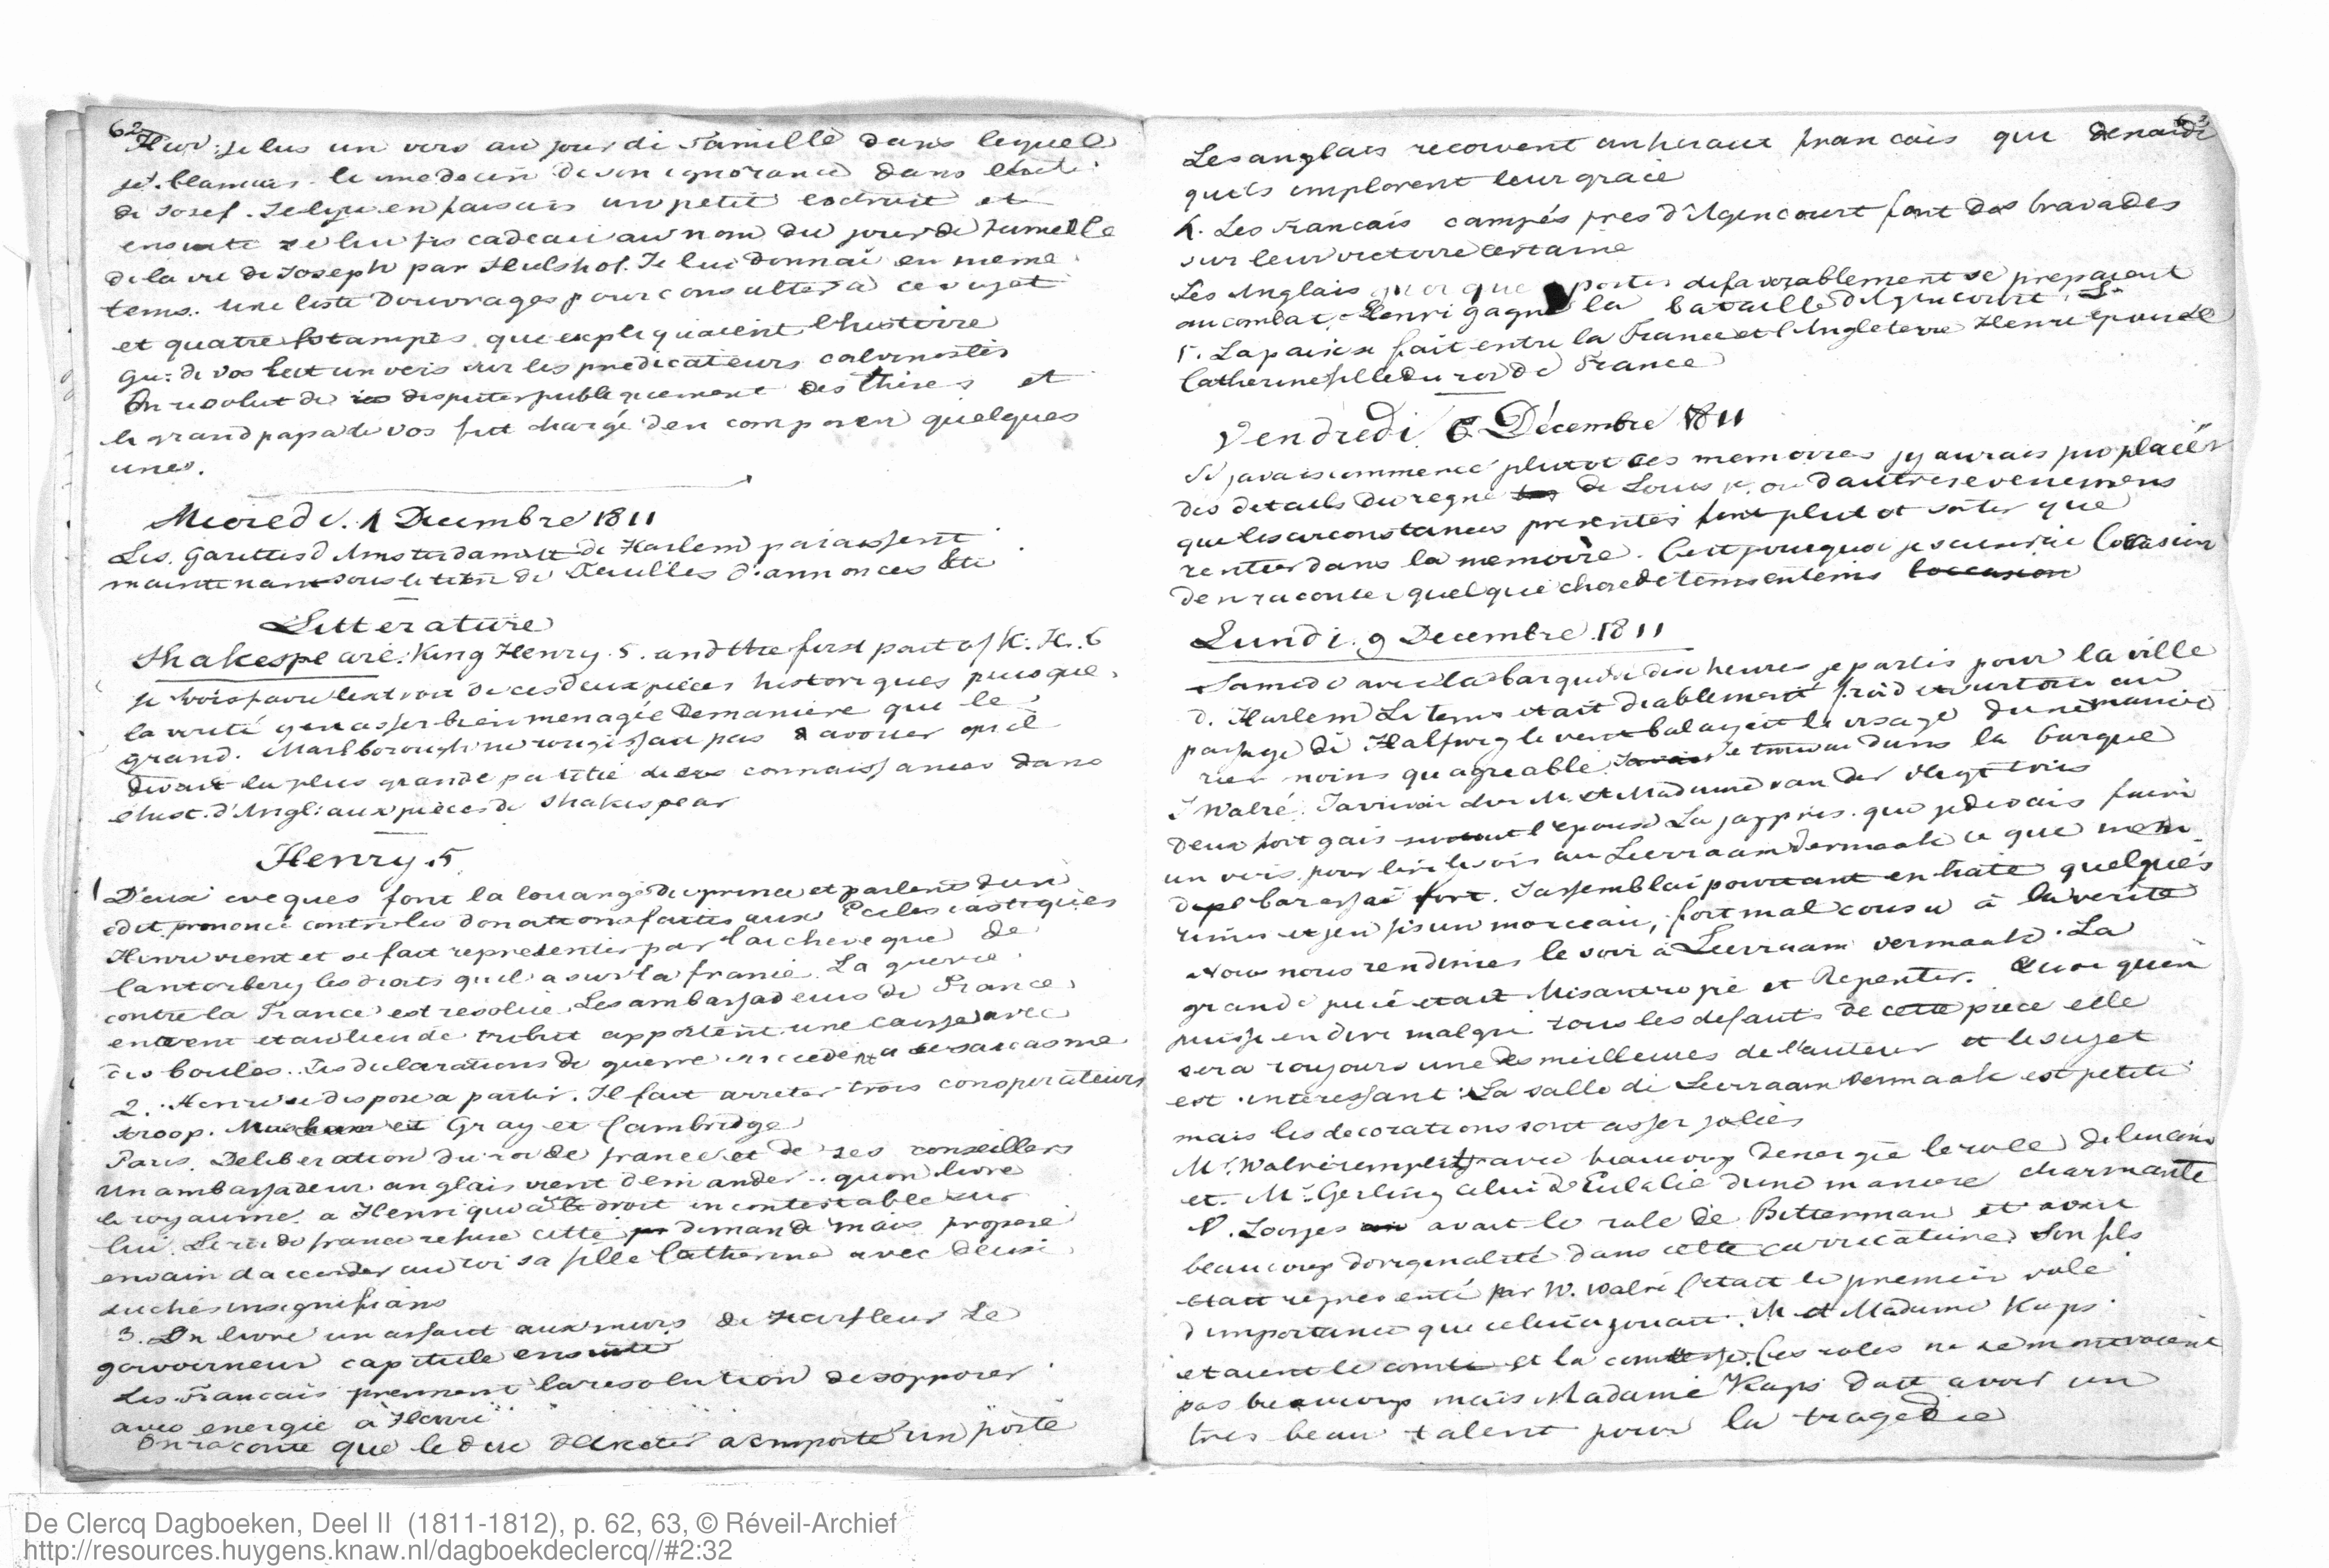 62
Hier: je lus un vers au jour de Jumelle dans lequel
je blamais le medecin de son ignorance dans
de Josef. J en faisais un petit extrait et
ensuite je lui fis cadeau au nom du jour de Jumelle
de la vie de Joseph par Hulshof. Je lui donnai en meme
tems. une liste douvrages pour consulter a ce sujet
et quatre Estampes que expliquaient lhistoire
Gu: de Vos lut un vers sur les predicateurs calvinistes
On resolut de disputer publiquement des thèses et
le grand papa de Vos fut chargé den composer quelques
unes.
Mercredi. 4 Decembre 1811
Les Gazettes d Amsterdam et de Harlem paraissent
maintenant sous le titre de Feuilles d'annonces &tc
Litterature
Shakespeare: King Henry. 5. and the first part of K. H. 6
Je vois faire lextrait de ces deux pièces historiques puisque
la verité y est assez bien menagée de maniere que le
grand. Marlborough ne rougissait pas d avouer qu'il
devait la plus grande partie de ses connaissances dans
l'hist. d'Angl: aux pièces de Shakespear
Henry 5
1 Deux eveques font la louange du prince et parlent dun
edit prononcé contre les donations faites aux Ecclesiastiques
Henri vient et se fait representer par l'archeveque de
Cantorbery les droits quil a sur la france. La guerre
contre la France est resolue. Les ambassadeurs de France
entrent et au lieu de tribut apportent une caisse avec
des boules. Les declarations de guerre succedent a ce sarcasme
2. Henri se dispose a partir. Il fait arreter trois conspirateurs
Scroop. et Gray et Cambridge
Paris. Deliberation du roi de france et de ses conseillers
Un ambassadeur anglais vient demander quon livre
le royaume a Henri qui a le droit incontestable sur
lui. Le roi de france refuse cette demande mais propose
envain d accorder au roi sa fille Catherine avec deux
duchés insignifians
3. On livre un assaut aux murs de Harfleur Le
gouverneur capitule ensuite
Les Francais prennent la resolution de s'opposer
avec energie à Henri
On raconte que le duc d'Exeter a emporté un poste
63
Les anglais recoivent un heraut francais qui demande
quils implorent leur grace
4. Les Francais campés pres d'Agencourt font des bravades
sur leur victoire certaine
Les Anglais quoique postés defavorablement se preparent
au combat, Henri gagne la bataille d'Agincourt.
5. La paix se fait entre la France et l'Angleterre Henri epouse
Catherine fille du roi de France
Vendredi 6 Décembre 1811
Si javais commencé plutot ces memoires jy aurais pu placer
des details du regne de Louis N. ou dautres evenemens
que les circonstances presentes font plutot sortir que
rentrer dans la memoire. C'est pourquoi je saisirai l'occasion
den raconter quelque chose de tems en tems l'occasion
Lundi. 9 Decembre. 1811
Samedi avec la barque de dix heures je partis pour la ville
d. Harlem Le tems etait diablement froid et surtout au
passage de Halfweg le vent balayait le visage dune maniere
rien moins qu agreable. Je trouvai dans la barque
J Walré. J'arrivai chez M. et Madame van der Vlugt tous
deux fort gais surtout l'epouse La j'appris. que je devais faire
un vers, pour lire le soir au Leerzaam Vermaak ce que
fort. J'assemblai pourtant en hate quelques
rimes et jen fis un morceau, fort mal cousu à la verité
Nous nous rendimes le soir à Leerzaam Vermaak. La
grande piece etait Misantropie et Repentir. Quoi quon
puisse en dire malgré tous les defauts de cette piece elle
sera toujours une des meilleures de l'auteur et le sujet
est interessant La salle de Leerzaam Vermaak est petite
mais les decorations sont assez jolies
Mr. Walré remplit avec beaucoup denergie le role de linconnu
et Mr. Gerling celui d'Eulalie dune maniere charmante
P. Loosjes avait le role de Bitterman et avait
beaucoup doriginalité dans cette carricature. Son fils
etait representé par W. Walré C'etait le premier role
d importance que celui ci jouait. M et Madame Kups
etaient le comte et la comtesse. Ces roles ne
pas beaucoup mais Madame Kups doit avoir un
tres beau talent pour la tragedie
De Clercq Dagboeken, Deel II (1811-1812), p. 62, 63, © Réveil-Archief
http://resources.huygens.knaw.nl/dagboekdeclercq//#2:32